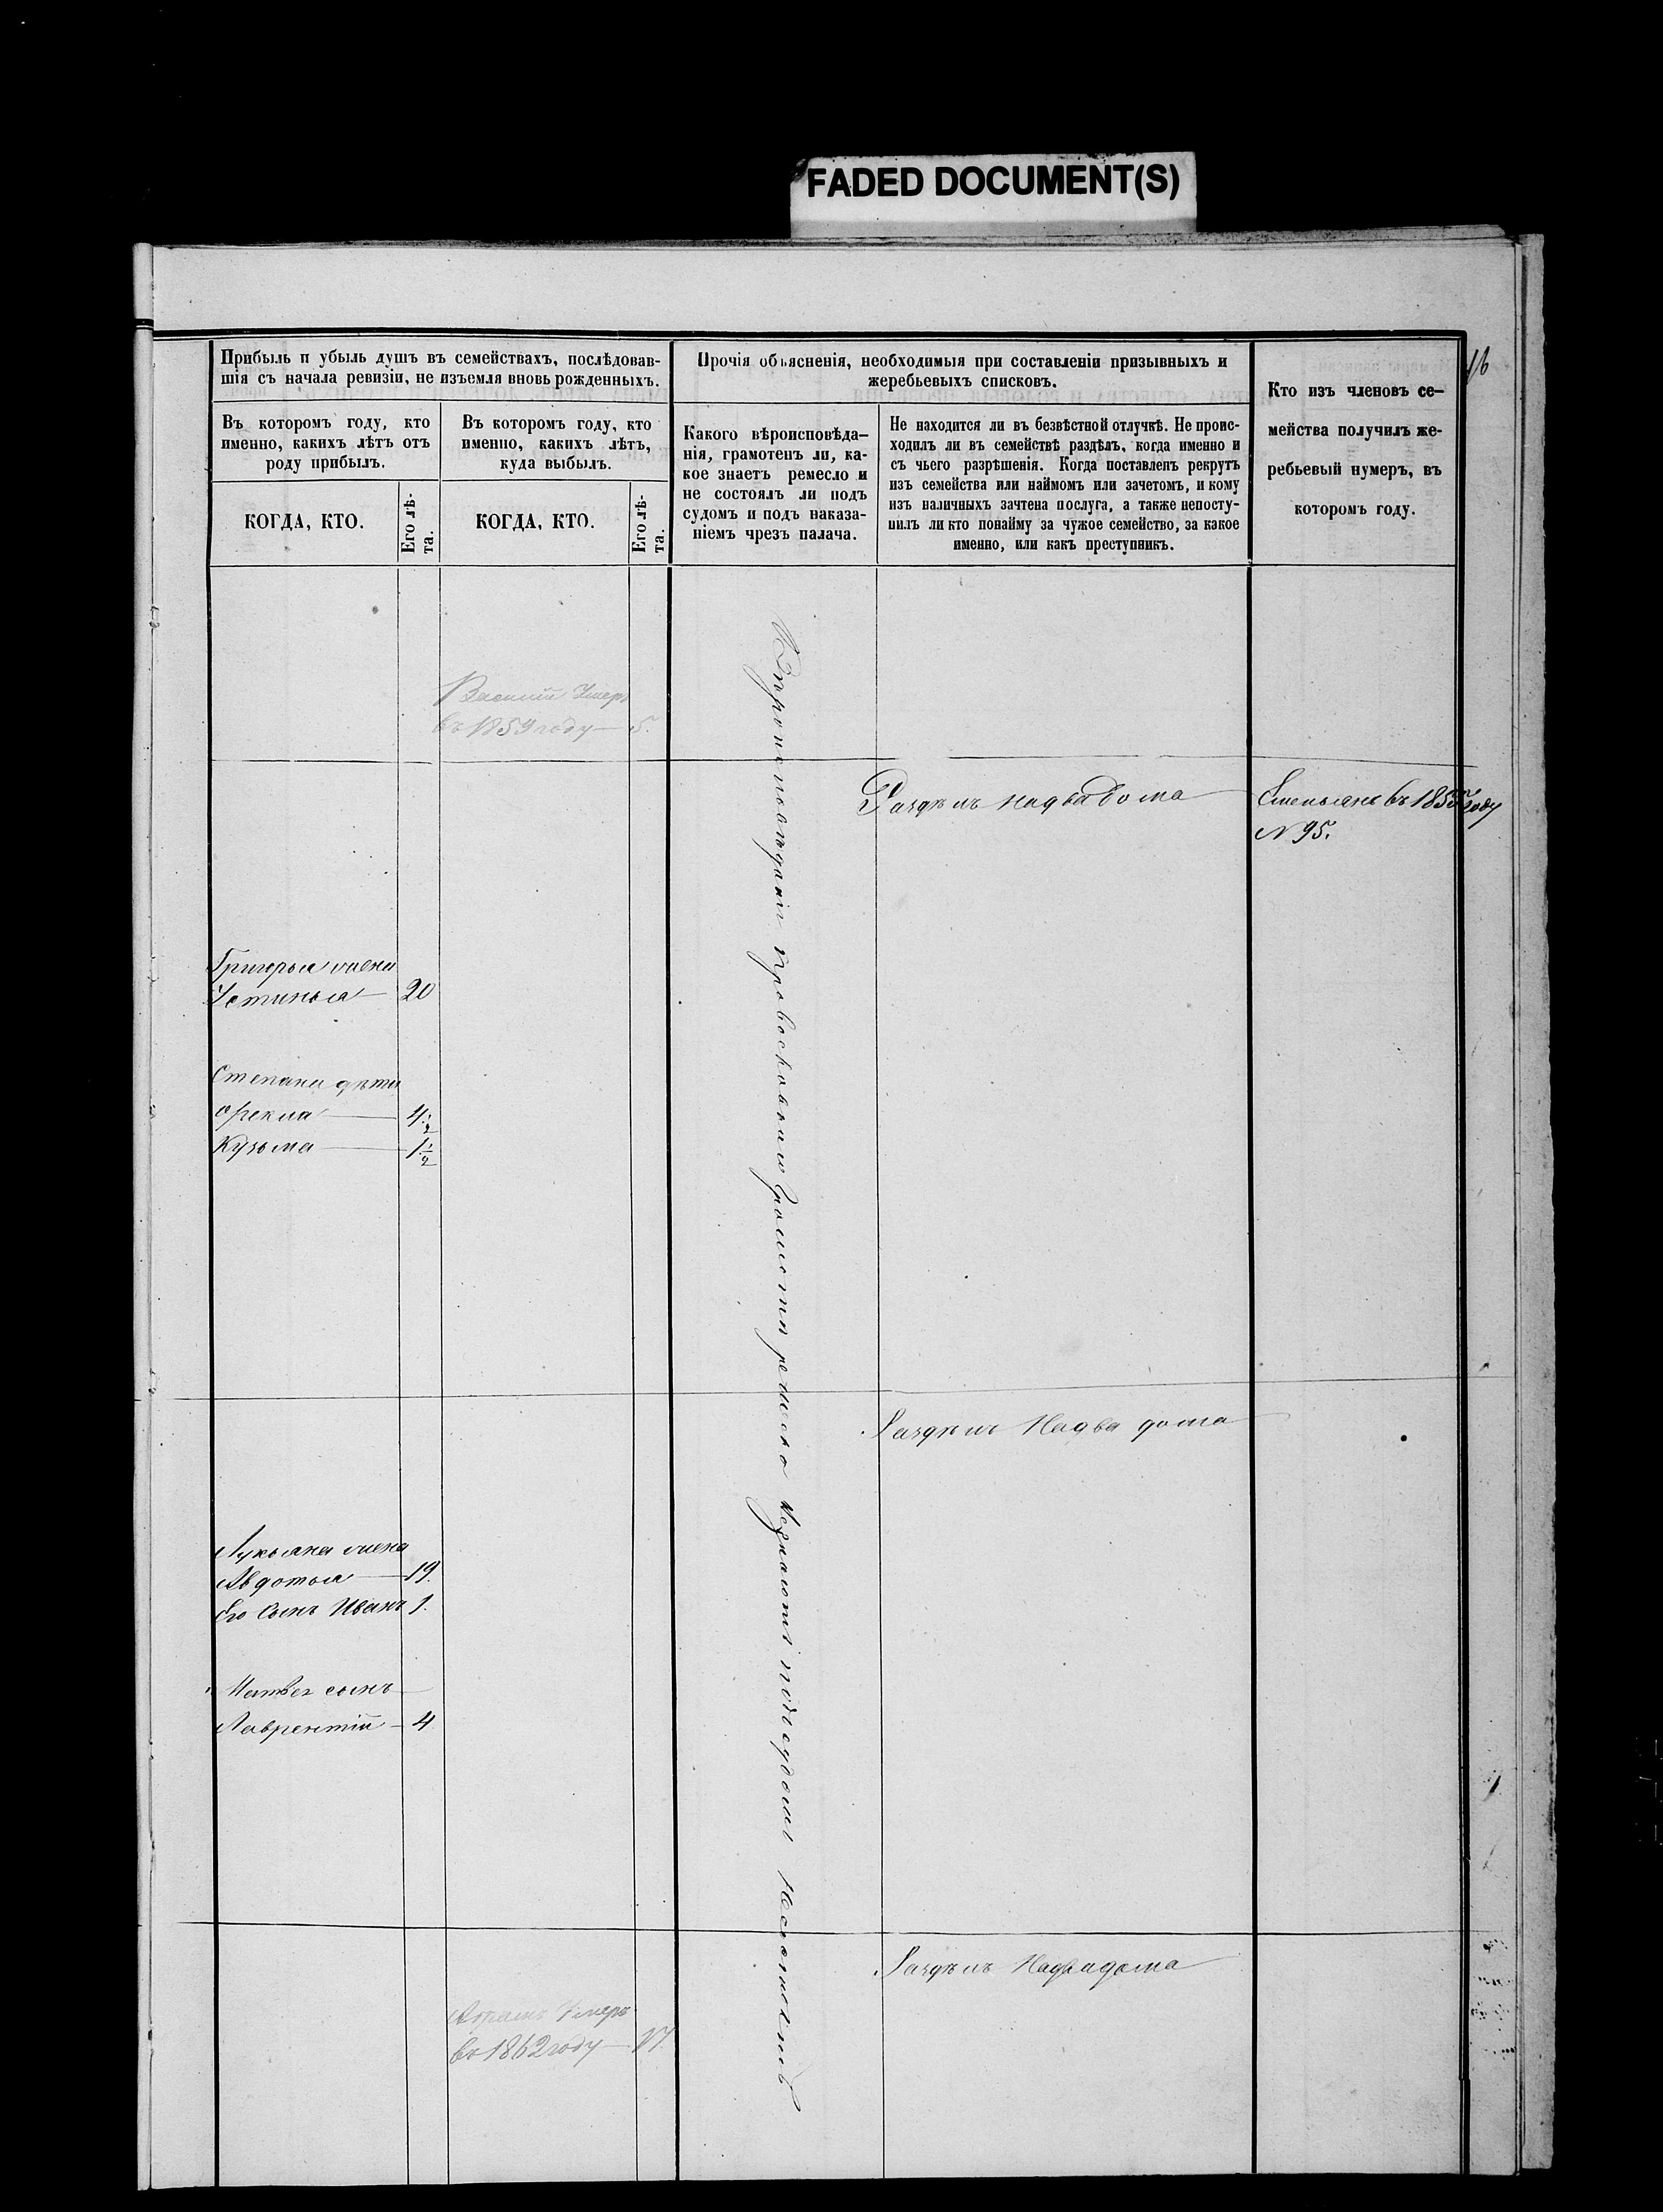 FADED DOCUMENT(S)
16
Прибыль и убыль душъ въ семействахъ, послѣдовав-
шія съ начала ревизіи, не изъемля вновь рожденныхъ.
Прочія объясненія, необходимыя при составленіи призывныхъ и
жеребьевыхъ списковъ.
Кто изъ членовъ се-
мейства получилъ же-
ребьевый нумеръ, въ
которомъ году.
Въ которомъ году, кто
именно, какихъ лѣтъ отъ
роду прибылъ.
Въ которомъ году, кто
именно, какихъ лѣтъ,
куда выбылъ.
Какого вѣроисповѣда-
нія, грамотенъ ли, ка-
кое знаетъ ремесло и
не состоялъ ли подъ
судомъ и подъ наказа-
ніемъ чрезъ палача.
Не находится ли въ безвѣстной отлучкѣ. Не проис-
ходилъ ли въ семействѣ раздѣлъ, когда именно и
съ чьего разрѣшенія. Когда поставленъ рекрутъ
изъ семейства или наймомъ или зачетомъ, и кому
изъ наличныхъ зачтена послуга, а также непосту-
пилъ ли кто понайму за чужое семейство, за какое
именно, или какъ преступникъ.
КОГДА, КТО.
Его лѣ-
та.
КОГДА, КТО.
Его лѣ-
та.
Василій Умеръ
въ 1859 году — 5.
Раздѣлъ надва дома
Емельянъ въ 1855 году
N 95.
Григорья жена
Устинья — 20
Степана дѣти
Фекла — 4 1/2
Кузьма — 1 1/2
Раздѣлъ Надва дома
Лукьяна жена
Авдотья — 19.
Его Сынъ Иванъ 1.
Матвея сынъ
Лаврентій — 4
Раздѣлъ Надва дома
Абрамъ Умеръ
въ 1862 году — 17.